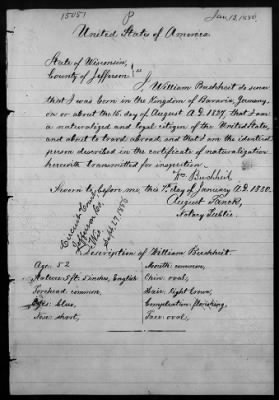 15051
P
Jan, 13, 1880,
United States of America
State of Wisconsin,
County of Jefferson } ss
I, William Buchheit do swear
that I was born in the Kingdom of Bavaria, Germany,
on or about the 15. day of August A.D. 1827, that I am
a naturalized and legal citizen of the United States,
and about to travel abroad, and that I am the identical
person described in the certificate of naturalization
herewith transmitted for inspection.
Wm Buchheit
Sworn to before me, this 7th day of January A.D. 1880.
August
Notary Public.
Circuit Court
Jefferson Co,
Wis.
Sept 27, 1856
Description of William Buchheit.
Age: 52
Mouth: common,
Stature: 5 ft. 5 inches, English
Chin: oval,
Forehead: common,
Hair: light brown,
Eyes: blue,
Complexion: flourishing,
Nose: short,
Face: oval,